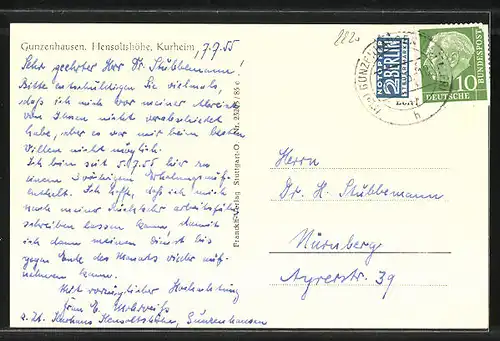 Gunzenhausen. Hensoltshöhe, Kurheim
7.7.55
882
Sehr geehrter Herr Dr. Stübbemann!
Bitte entschuldigen Sie vielmals,
daß ich mich vor meiner Abreise
von Ihnen nicht verabschiedet
habe, aber es war mir beim besten
Willen nicht möglich.
Ich bin seit 5.7.55 hier zu
einem Erholungsauf-
enthalt. Ich hoffe, daß ich mich
nach meiner Rückkehr arbeitsfähig
schreiben lassen kann, damit
ich dann meinen Dienst bis
gegen Ende des Monats wieder auf-
nehmen kann.
Mit vorzüglicher Hochachtung
Frau E.
z. Zt. Kurhaus Hensoltshöhe, Gunzenhausen
Franckh-Verlag Stuttgart-O.
Herrn
Dr. H. Stübbemann
Nürnberg
Ayrerstr. 39
NOTOPFER
2 BERLIN
STEUERMARKE
GUNZEN
h
10
DEUTSCHE
BUNDESPOST